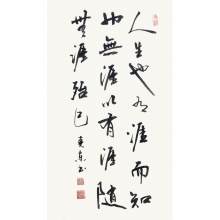 人生也有涯而知
也無涯以有涯隨
無涯殆已